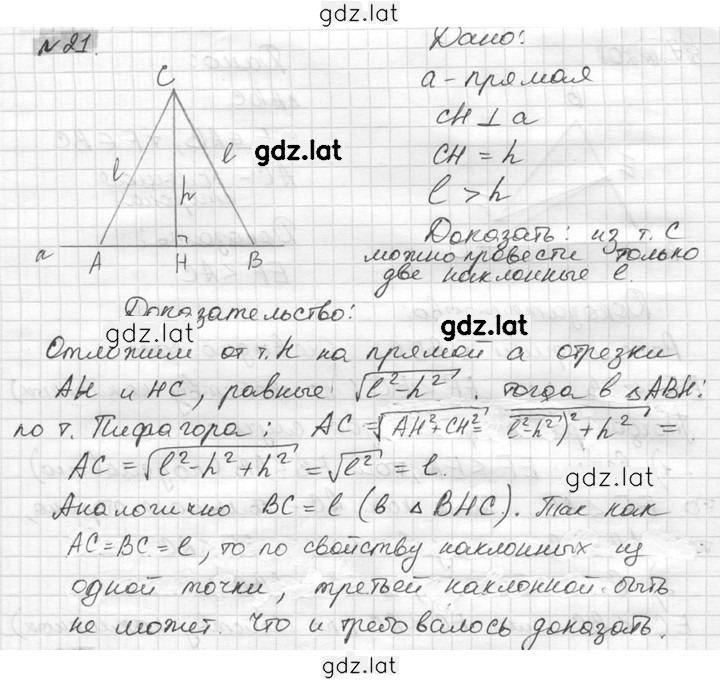 gdz.lat
№ 21.
Дано:
a - прямая
CH ⊥ a
CH = h
l > h
Доказать: из т. С
можно провести только
две наклонные l.
C
l
l
gdz.lat
h
a
A
H
B
Доказательство:
gdz.lat
gdz.lat
Отложим от т. H на прямой a отрезки
AH и HC, равные √(l²-h²). тогда в △ABH:
по т. Пифагора: AC = √(AH²+CH²) = √(l²-h²)²+h² =
AC = √(l²-h²+h²) = √(l²) = l.
gdz.lat
Аналогично BC = l (в △BHC). Так как
AC=BC=l, то по свойству наклонных из
одной точки, третьей наклонной быть
не может. Что и требовалось доказать.
gdz.lat